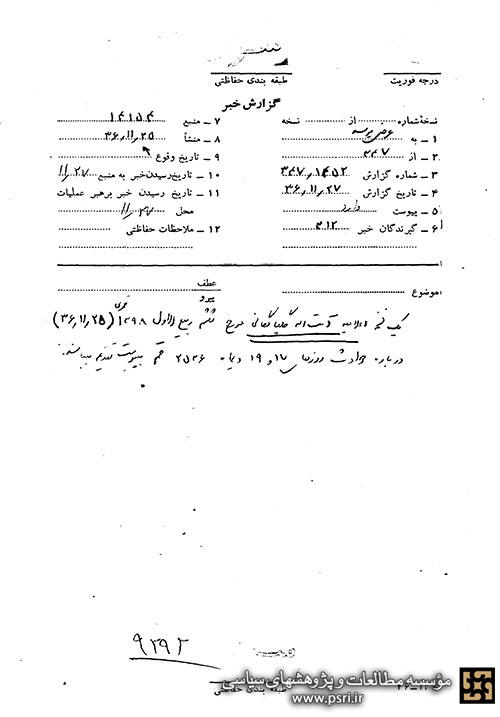 درجه فوریت
طبقه بندی حفاظتی
گزارش خبر
نسخه شماره از نسخه
۱ - به
۲ - از ۳۴۷
۳ - شماره گزارش
۴ - تاریخ گزارش ۳۶،۱۱،۲۷
۵ - پیوست دارد
۶ - گیرندگان خبر ۳۱۲
۷ - منبع
۸ - منشأ ۳۶،۱۱،۲۵
۹ - تاریخ وقوع
۱۰ - تاریخ رسیدن خبر به منبع ۱۱،۲۷
۱۱ - تاریخ رسیدن خبر برهبر عملیات
محل
۱۲ - ملاحظات حفاظتی
موضوع
عطف
پیرو
یک نسخه اعلامیه آیت اله گلپایگانی مورخ ششم ربیع الاول ۱۳۹۸ قمری (۳۶،۱۱،۲۵)
درباره حوادث روزهای ۱۷ و ۱۹ دیماه ۲۵۳۶ قم بپیوست تقدیم میباشد.
۹۲۹۲
طبقه بندی حفاظتی
مؤسسه مطالعات و پژوهشهای سیاسی
www.psri.ir